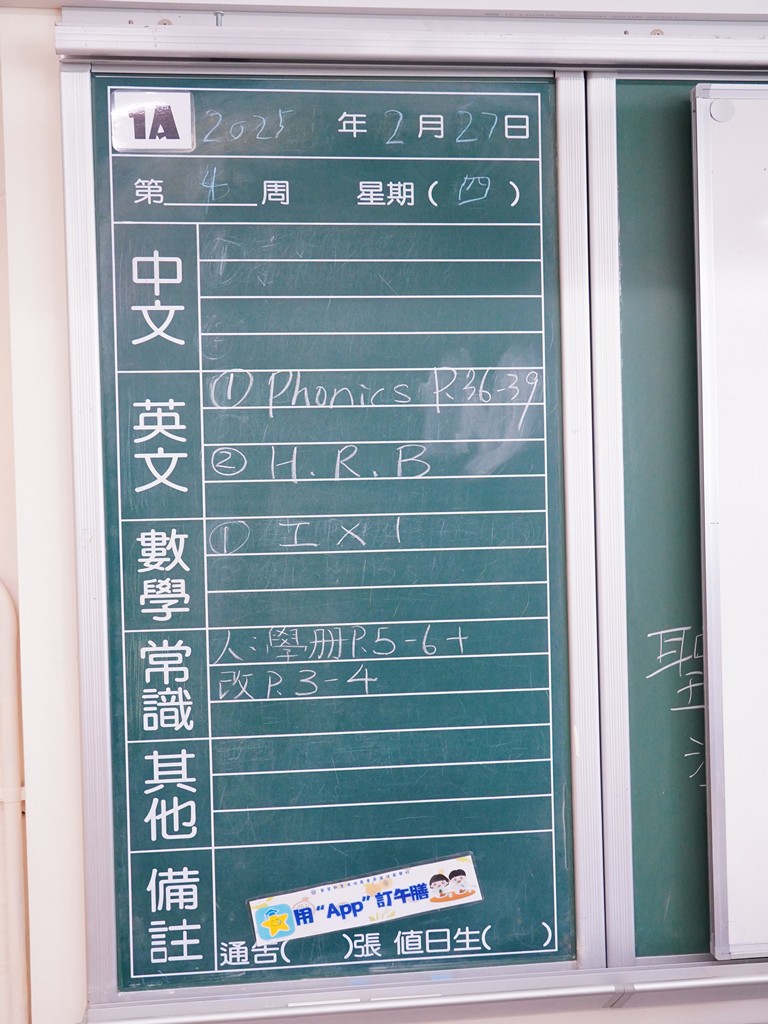 1A 2025 年 2 月 27 日
第 4 周 星期( 四 )
中文
英文
① Phonics P.36-39
② H.R.B
數學
① 工×1
常識
人:學冊P.5-6+
改P.3-4
其他
備註
用“App”訂午膳
通告( )張 值日生( )